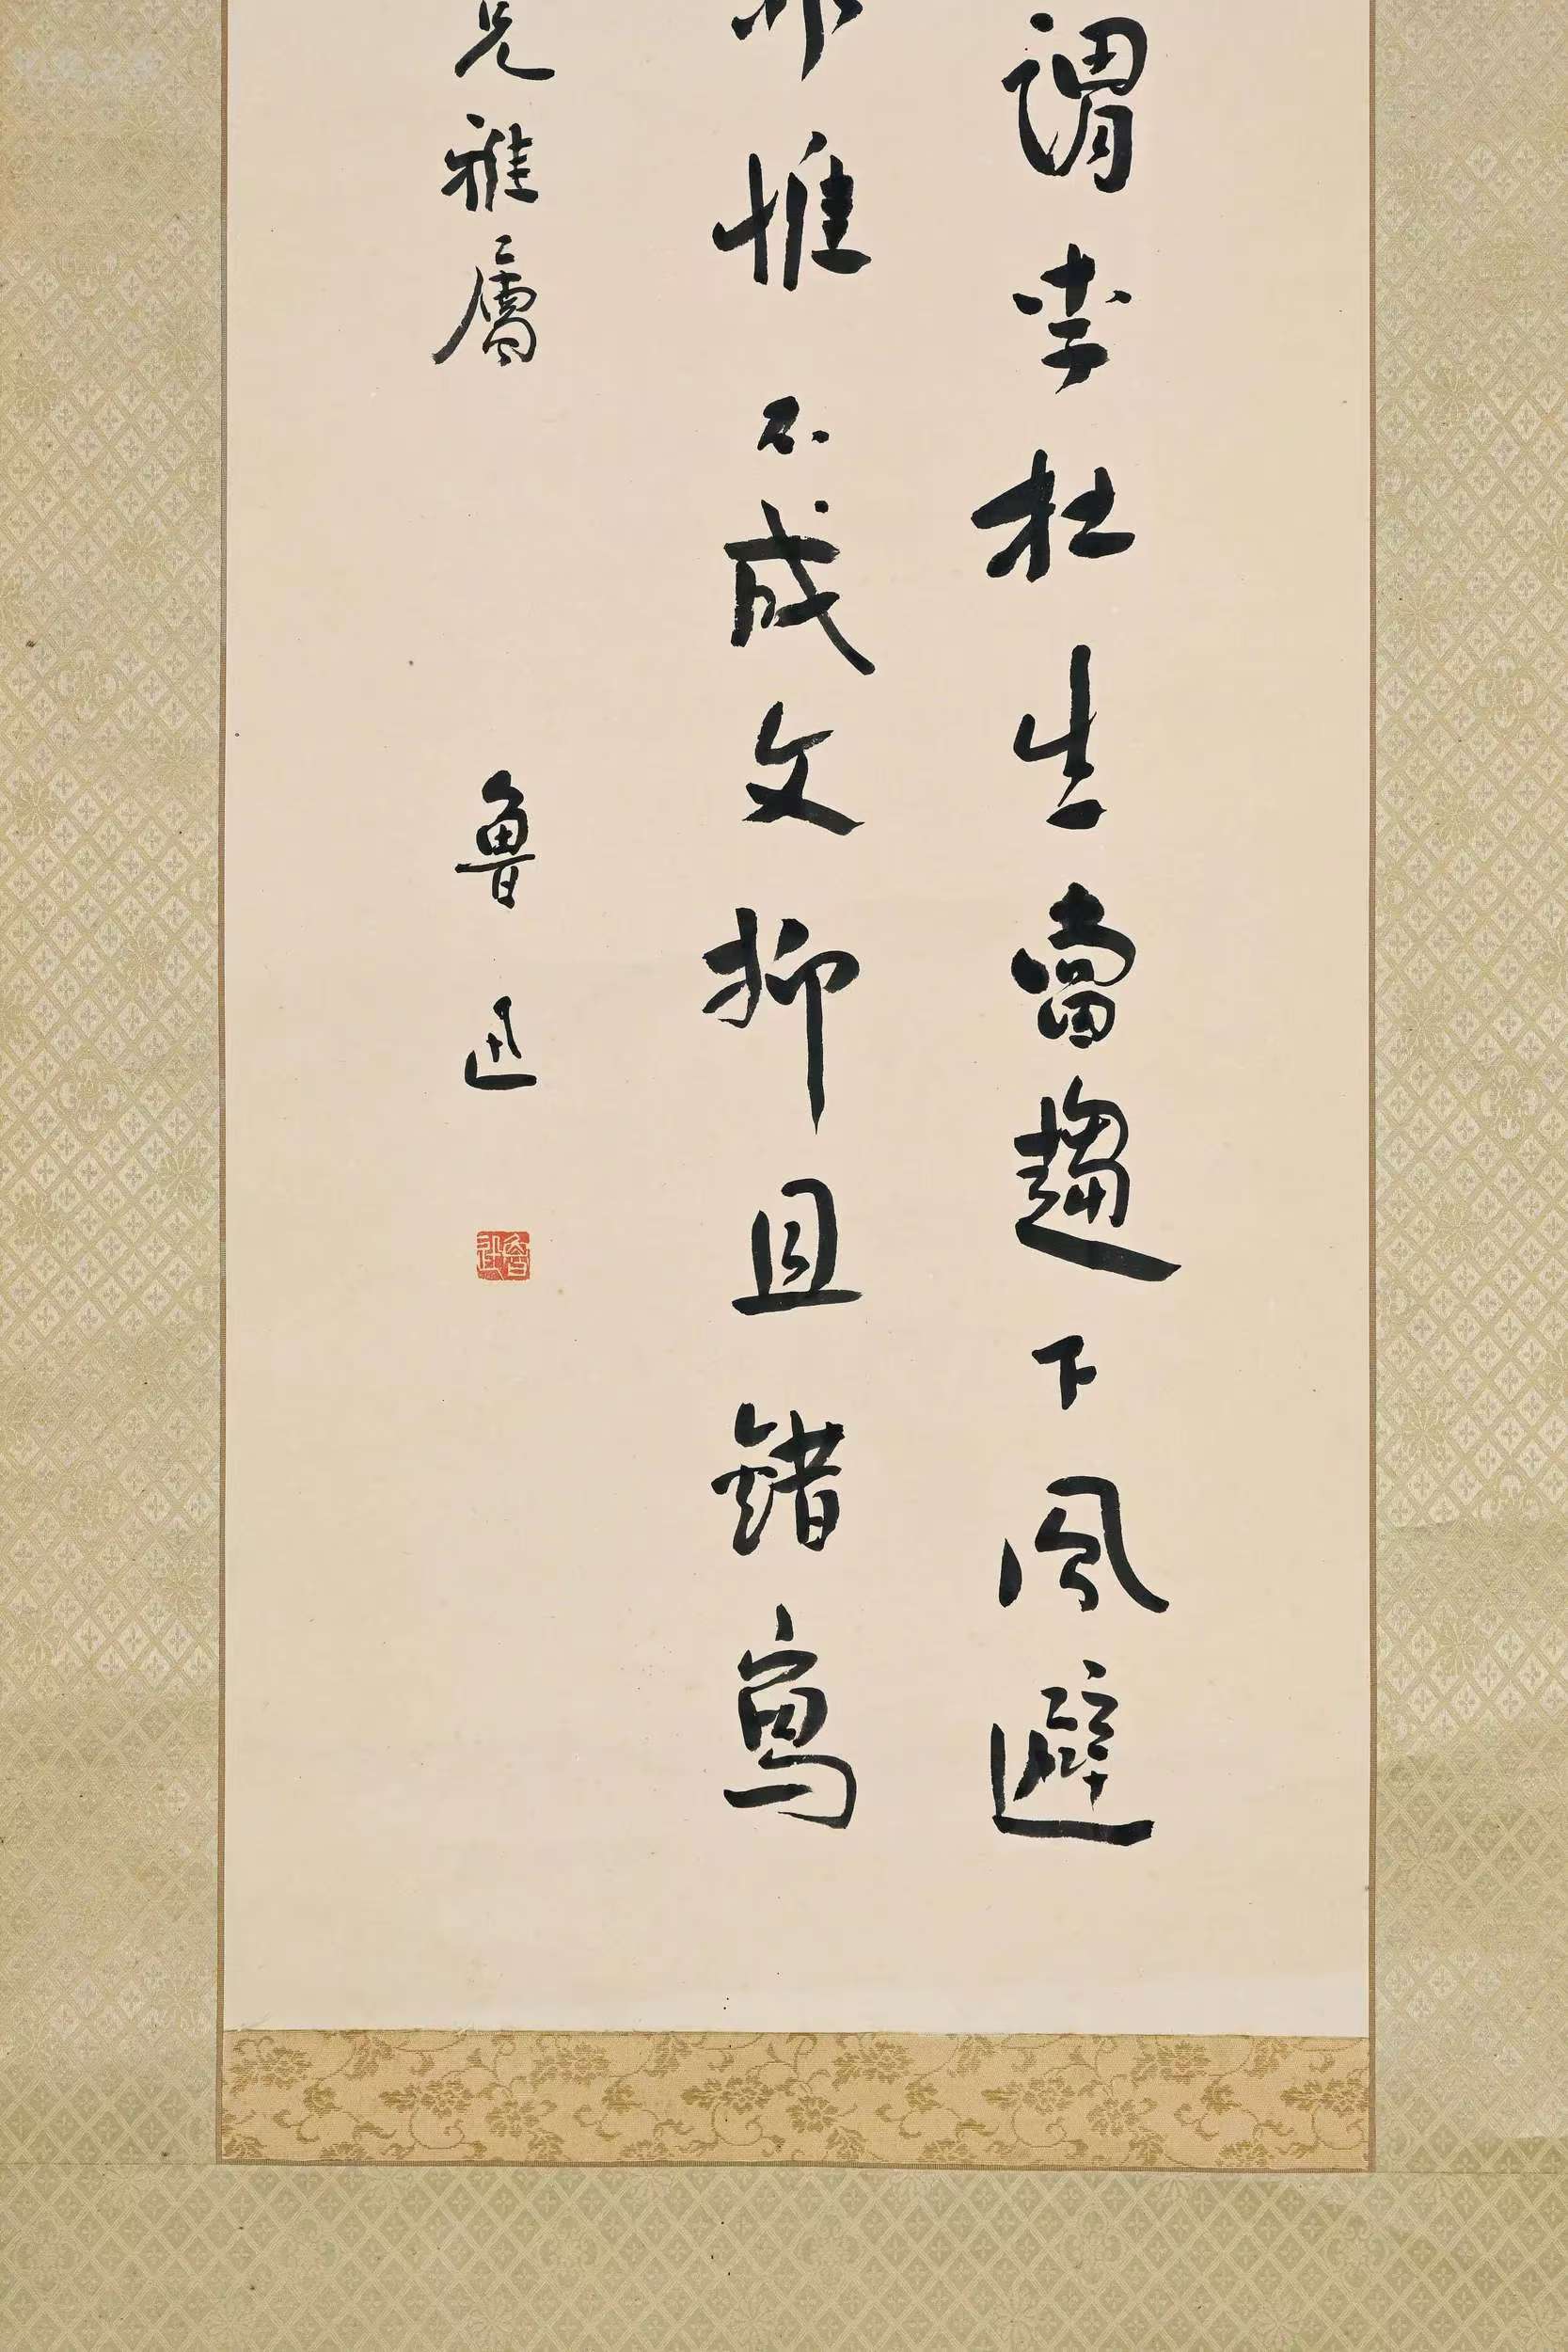 謂李杜生當趨下風避
惟不成文抑且錯寫
兄雅屬
魯迅
魯迅